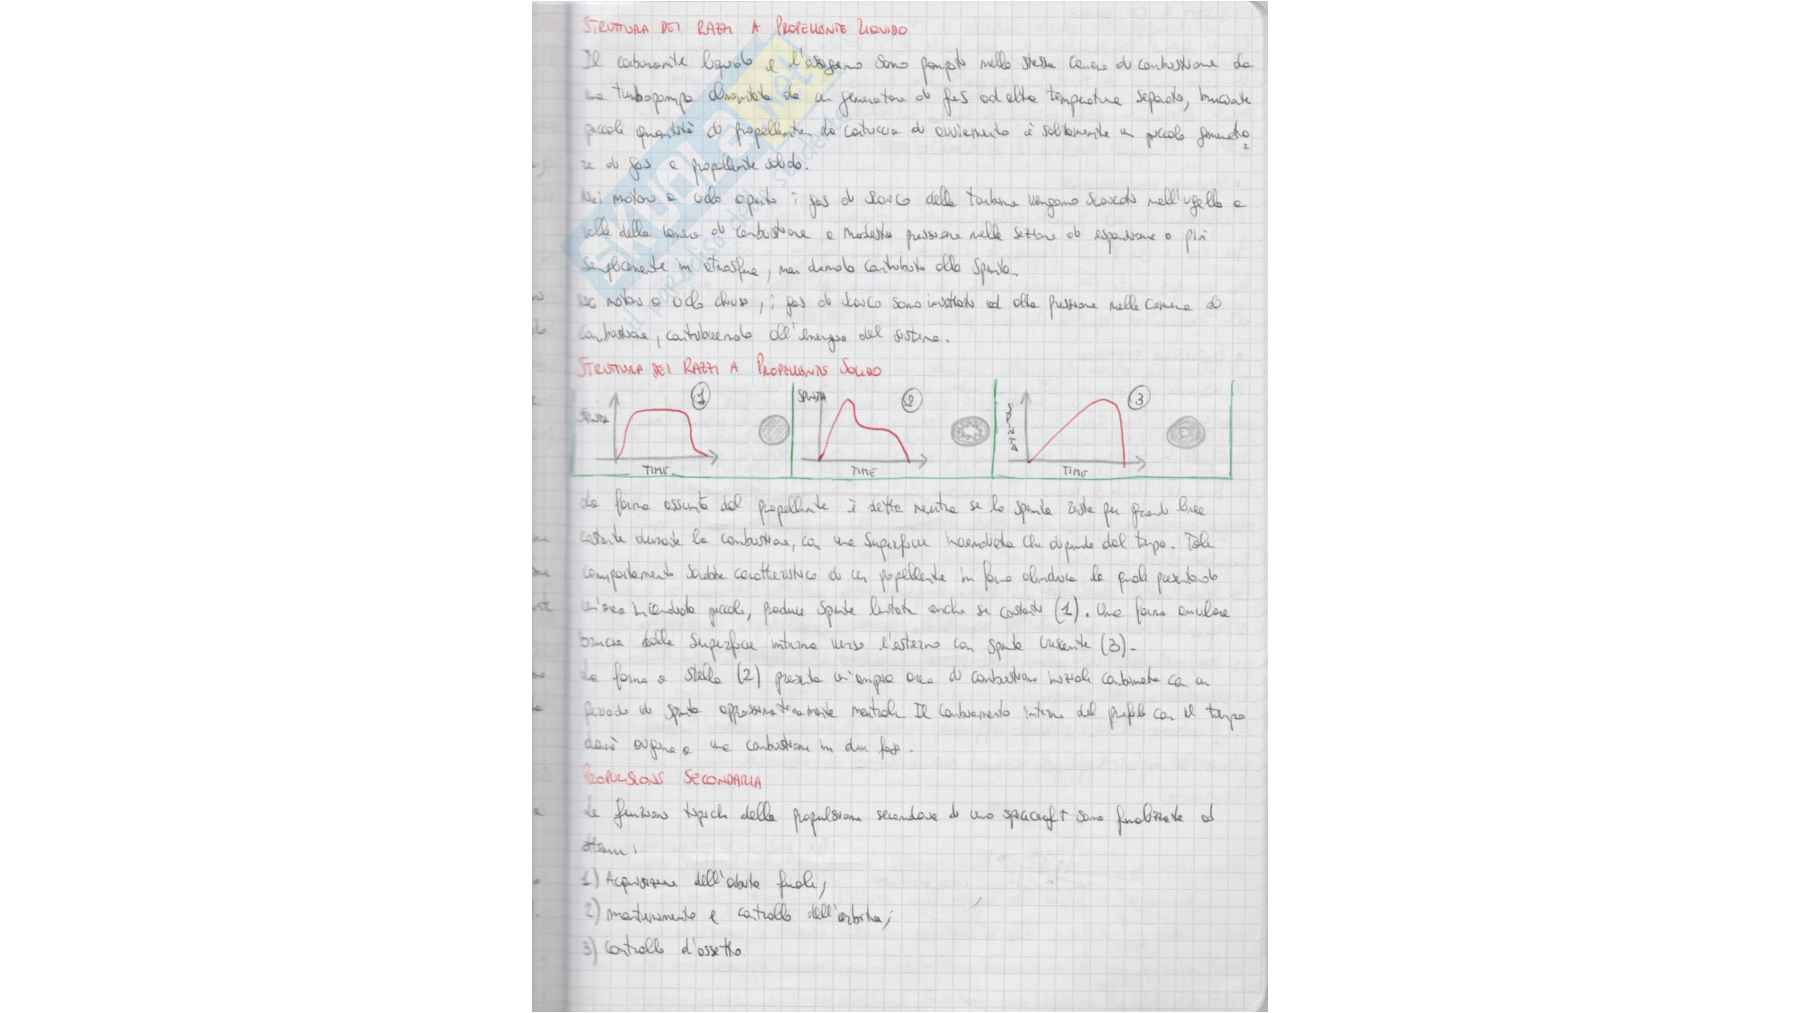 STRUTTURA DEI RAZZI A PROPELLENTE LIQUIDO
Il carburante liquido e l'ossigeno sono pompati nella stessa camera di combustione da
una turbopompa alimentata da un generatore di gas ad alta temperatura separato, bruciante
piccole quantità di propellente. La cartuccia di avviamento è solitamente un piccolo generato
re di gas a propellente solido.
Nei motori a ciclo aperto i gas di scarico della turbina vengono scaricati nell'ugello a
valle della camera di combustione a modesta pressione nella sezione di espansione o più
semplicemente in atmosfera, non dando contributo alla spinta.
Nei motori a ciclo chiuso, i gas di scarico sono iniettati ad alta pressione nella camera di
combustione, contribuendo all'energia del sistema.
STRUTTURA DEI RAZZI A PROPELLENTE SOLIDO
SPINTA 1 TIME
SPINTA 2 TIME
SPINTA 3 TIME
La forma assunta dal propellente è detta neutra se la spinta resta per grandi linee
costante durante la combustione, con una superficie incendiata che dipende dal tempo. Tale
comportamento sarebbe caratteristico di un propellente in forma cilindrica la quale presentando
un'area incendiata piccola, produce spinte limitate anche se costanti (1). Una forma anulare
brucia dalla superficie interna verso l'esterno con spinta crescente (3).
La forma a stella (2) presenta un'ampia area di combustione iniziale combinata con un
periodo di spinta approssimativamente neutrale. Il cambiamento interno del profilo con il tempo
darà origine a una combustione in due fasi.
PROPULSIONE SECONDARIA
Le funzioni tipiche della propulsione secondaria di uno spacecraft sono finalizzate ad
ottenere:
1) Acquisizione dell'orbita finale;
2) mantenimento e controllo dell'orbita;
3) Controllo d'assetto
SKUOLA.net